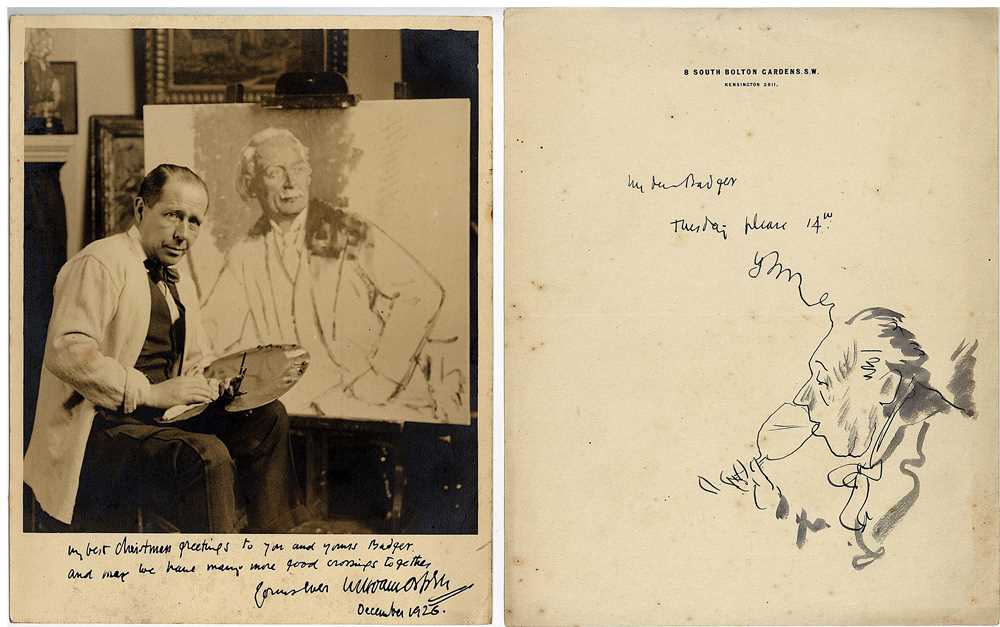 my best Christmas greetings to you and yours Badger.
and may we have many more good crossings together
Yours ever William Orpen
December 1926.
8 SOUTH BOLTON GARDENS. S.W.
KENSINGTON 2011.
My dear Badger
Tuesday please 14th.